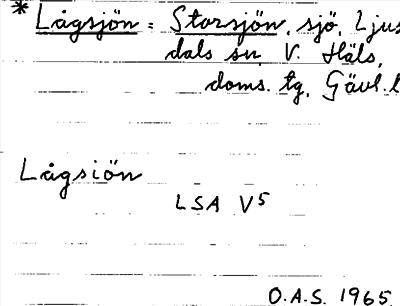 * Lågsjön = Storsjön, sjö, Ljus
dals sn, V. Häls,
doms. tg, Gävl. l
Lågsjön
LSA V5
O.A.S. 1965